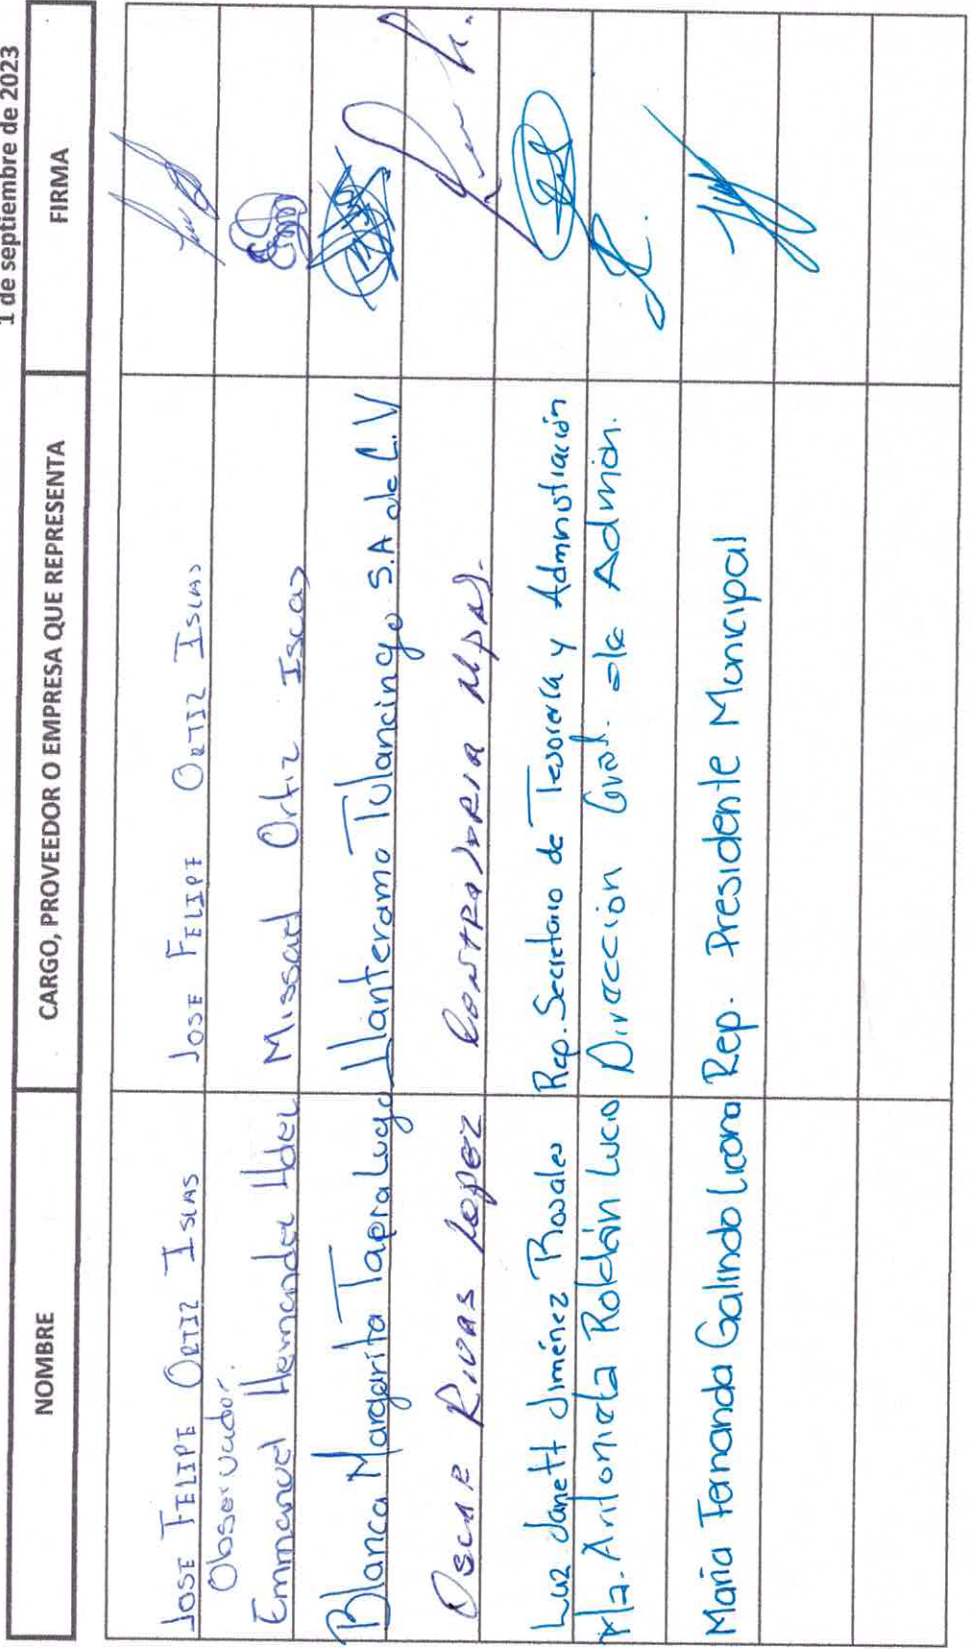 1 de septiembre de 2023
NOMBRE CARGO, PROVEEDOR O EMPRESA QUE REPRESENTA FIRMA
JOSE FELIPE ORTIZ ISLAS JOSE FELIPE ORTIZ ISLAS
Observador.
Emmanuel Hernandez Hdez Missael Ortiz Islas
Blanca Margarita Tapia Lugo Llanteramo Tulancingo S.A de C.V
Oscar Rivas Lopez Contraloria Mpal.
Luz Janett Jiménez Rosales Rep. Secretario de Tesorería y Administración
Ma. Antonieta Roldán Lucio Dirección Gral. de Admón.
María Fernanda Galindo Licona Rep. Presidente Municipal